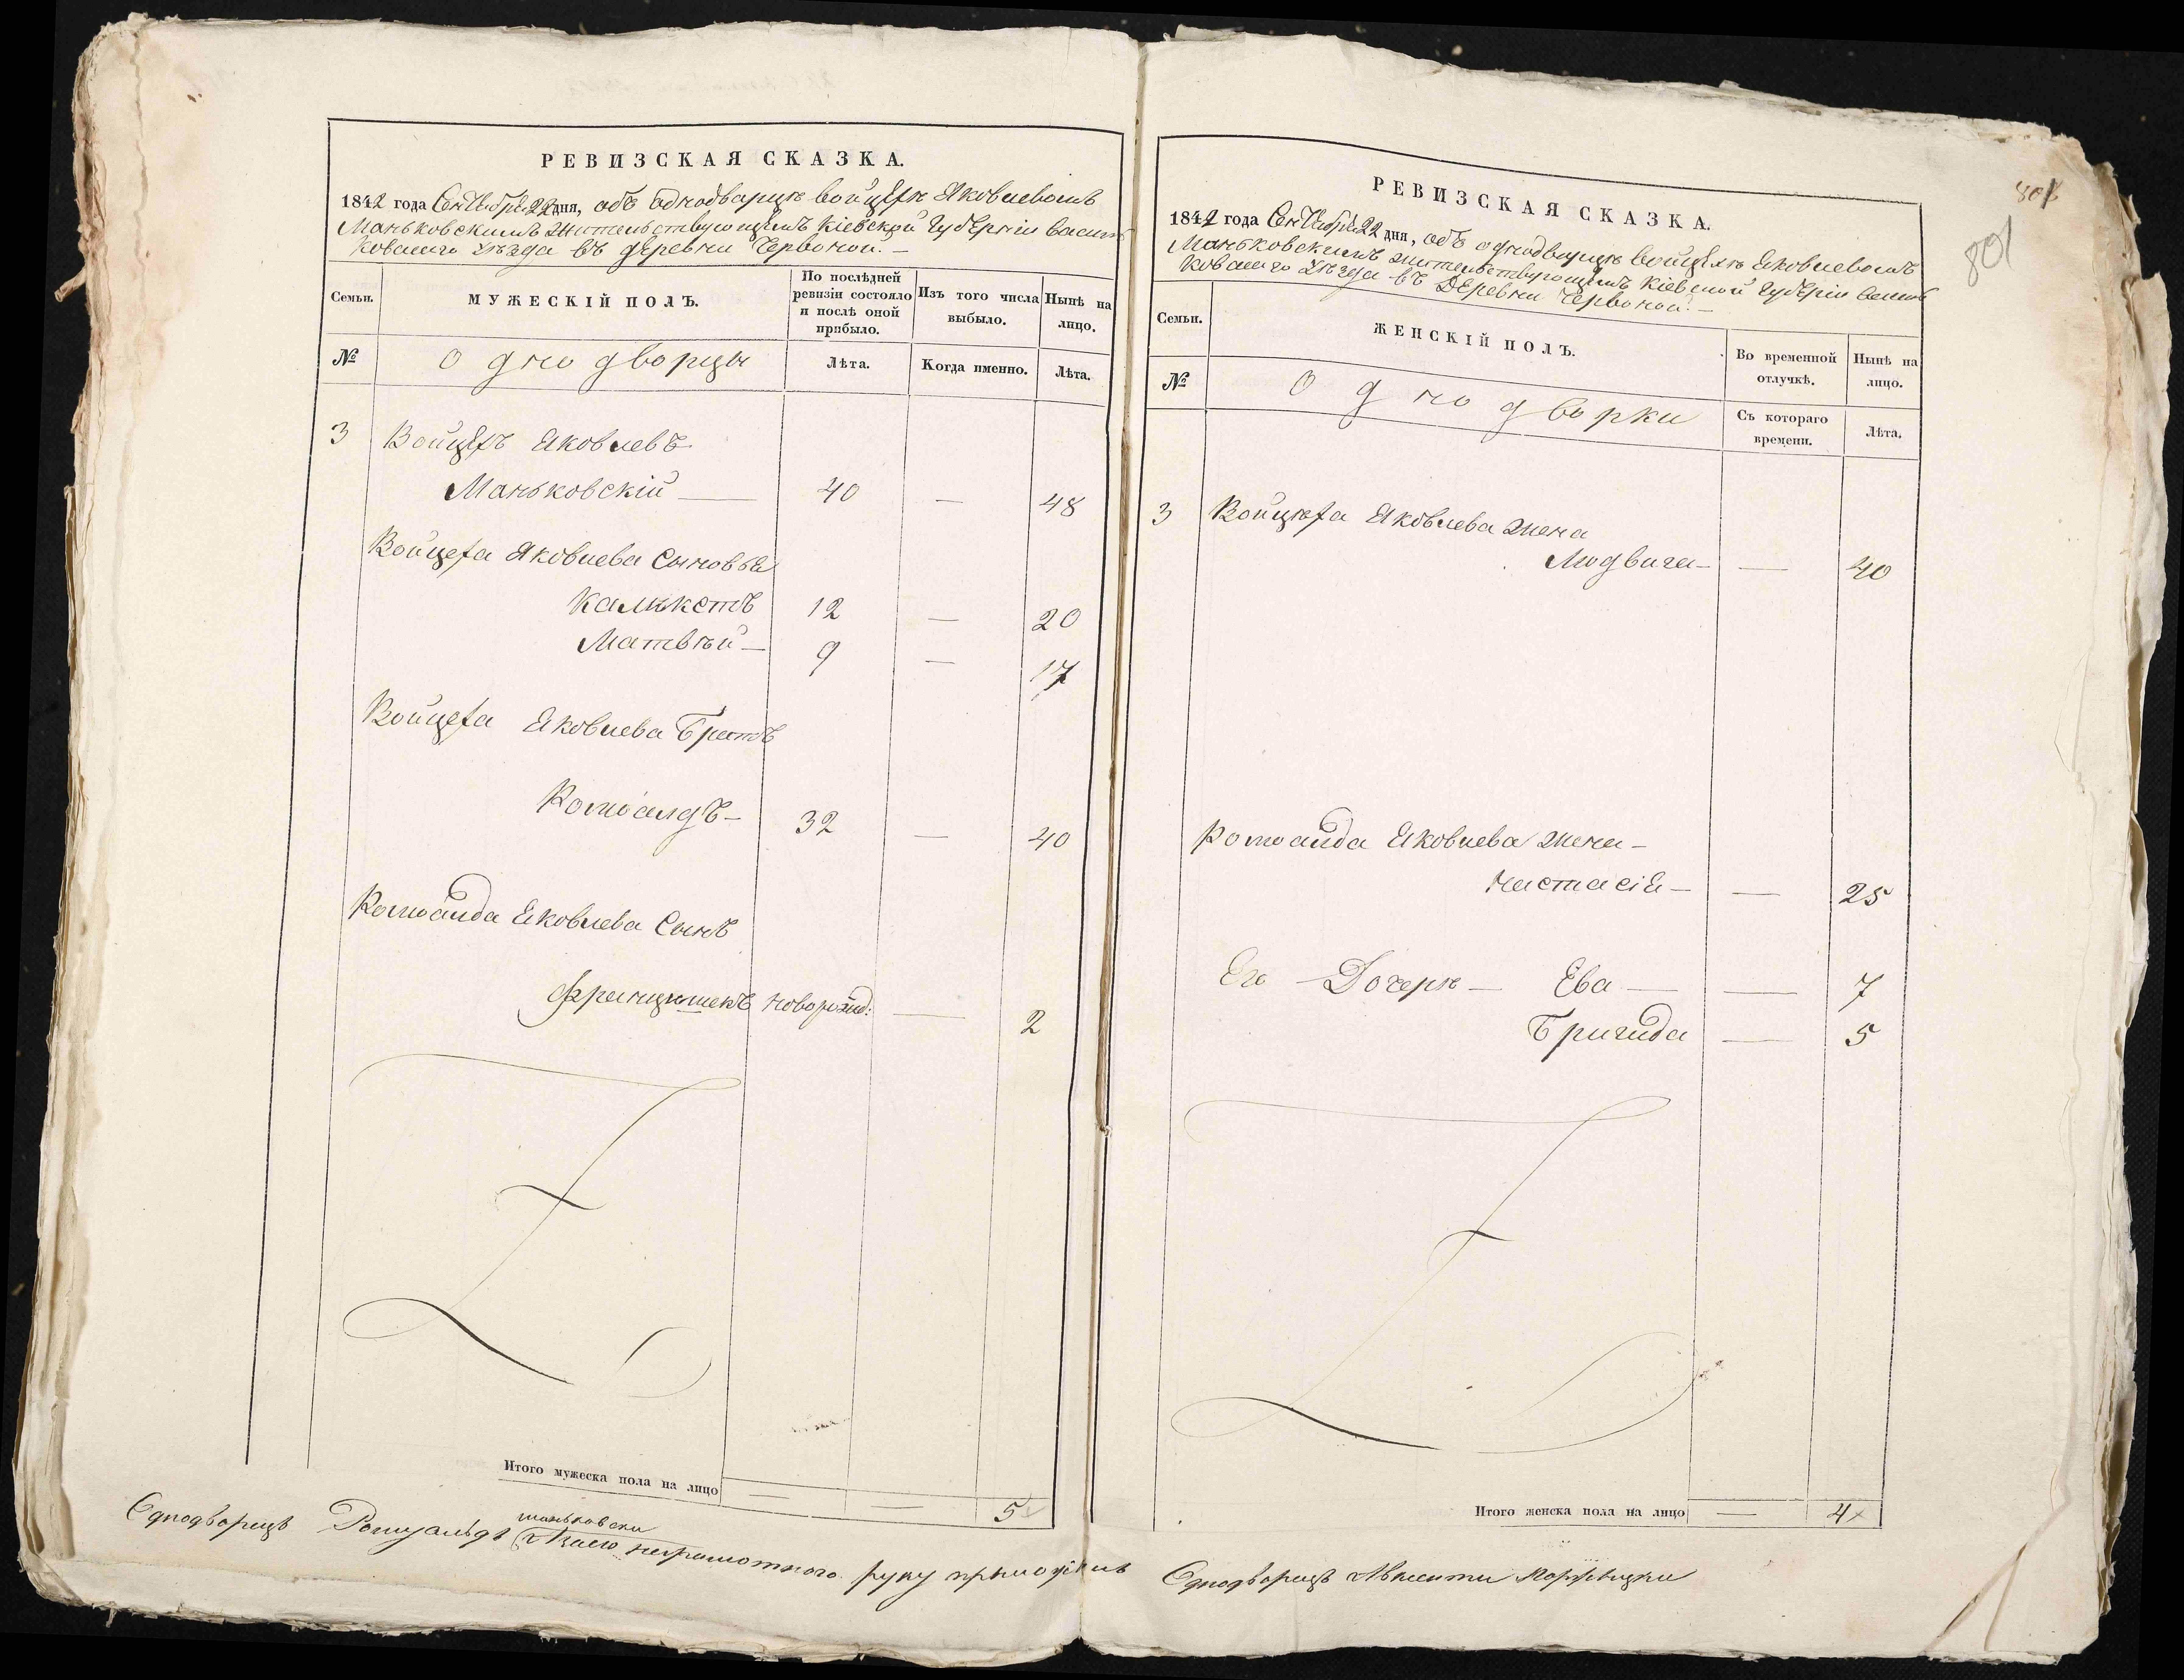 РЕВИЗСКАЯ СКАЗКА.
1842 года Сентября 22 дня, объ однодворцѣ Войцехѣ Яковлевомъ
Маньковскимъ жительствующимъ Кіевской Губерніи Василь
ковского уѣзда въ деревни Червоной. —
Семьи.
МУЖЕСКІЙ ПОЛЪ.
По послѣдней
ревизіи состояло
и послѣ оной
прибыло.
Изъ того числа
выбыло.
Нынѣ на
лицо.
№
Однодворцы
Лѣта.
Когда именно.
Лѣта.
3 Войцехъ Яковлевъ
Маньковскій — 40 — 48
Войцеха Яковлева Сыновья
Каликстъ 12 — 20
Матвѣй — 9 — 17
Войцеха Яковлева Братъ
Ромоалдъ — 32 — 40
Ромоалда Яковлева Сынъ
Францишекъ новорожд: — 2
Итого мужеска пола на лицо — — 5
Однодворецъ Ромуальдъ
маньковски
неграмотного руку приложилъ
РЕВИЗСКАЯ СКАЗКА.
1842 года Сентября 22 дня, объ однодворцѣ Войцехѣ Яковлевомъ
Маньковскимъ жительствующимъ Кіевской Губеріи Василь
ковского уѣзда въ Деревни Червоной. —
Семьи.
ЖЕНСКІЙ ПОЛЪ.
Во временной
отлучкѣ.
Нынѣ на
лицо.
№
Однодворки
Съ котораго
времени.
Лѣта.
3 Войцѣха Яковлева жена
Людвига — — 40
Ромоалда Яковлева жена —
Настасія — — 25
Его — Дочерѣ — Ева — — 7
Бригида — 5
Итого женска пола на лицо — 4
Однодворецъ
801